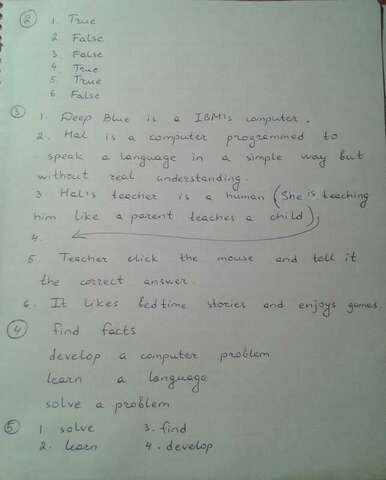 2 1. True
2 False
3 False
4 True
5 True
6 False
3 1. Deep Blue is a IBM's computer.
2. Hal is a computer programmed to
speak a language in a simple way but
without real understanding.
3 Hal's teacher is a human (She is teaching
him like a parent teaches a child)
4.
5. Teacher click the mouse and tell it
the correct answer.
6. It likes bedtime stories and enjoys games.
4 find facts
develop a computer problem
learn a language
solve a problem
5 1. solve 3. find
2. learn 4. develop